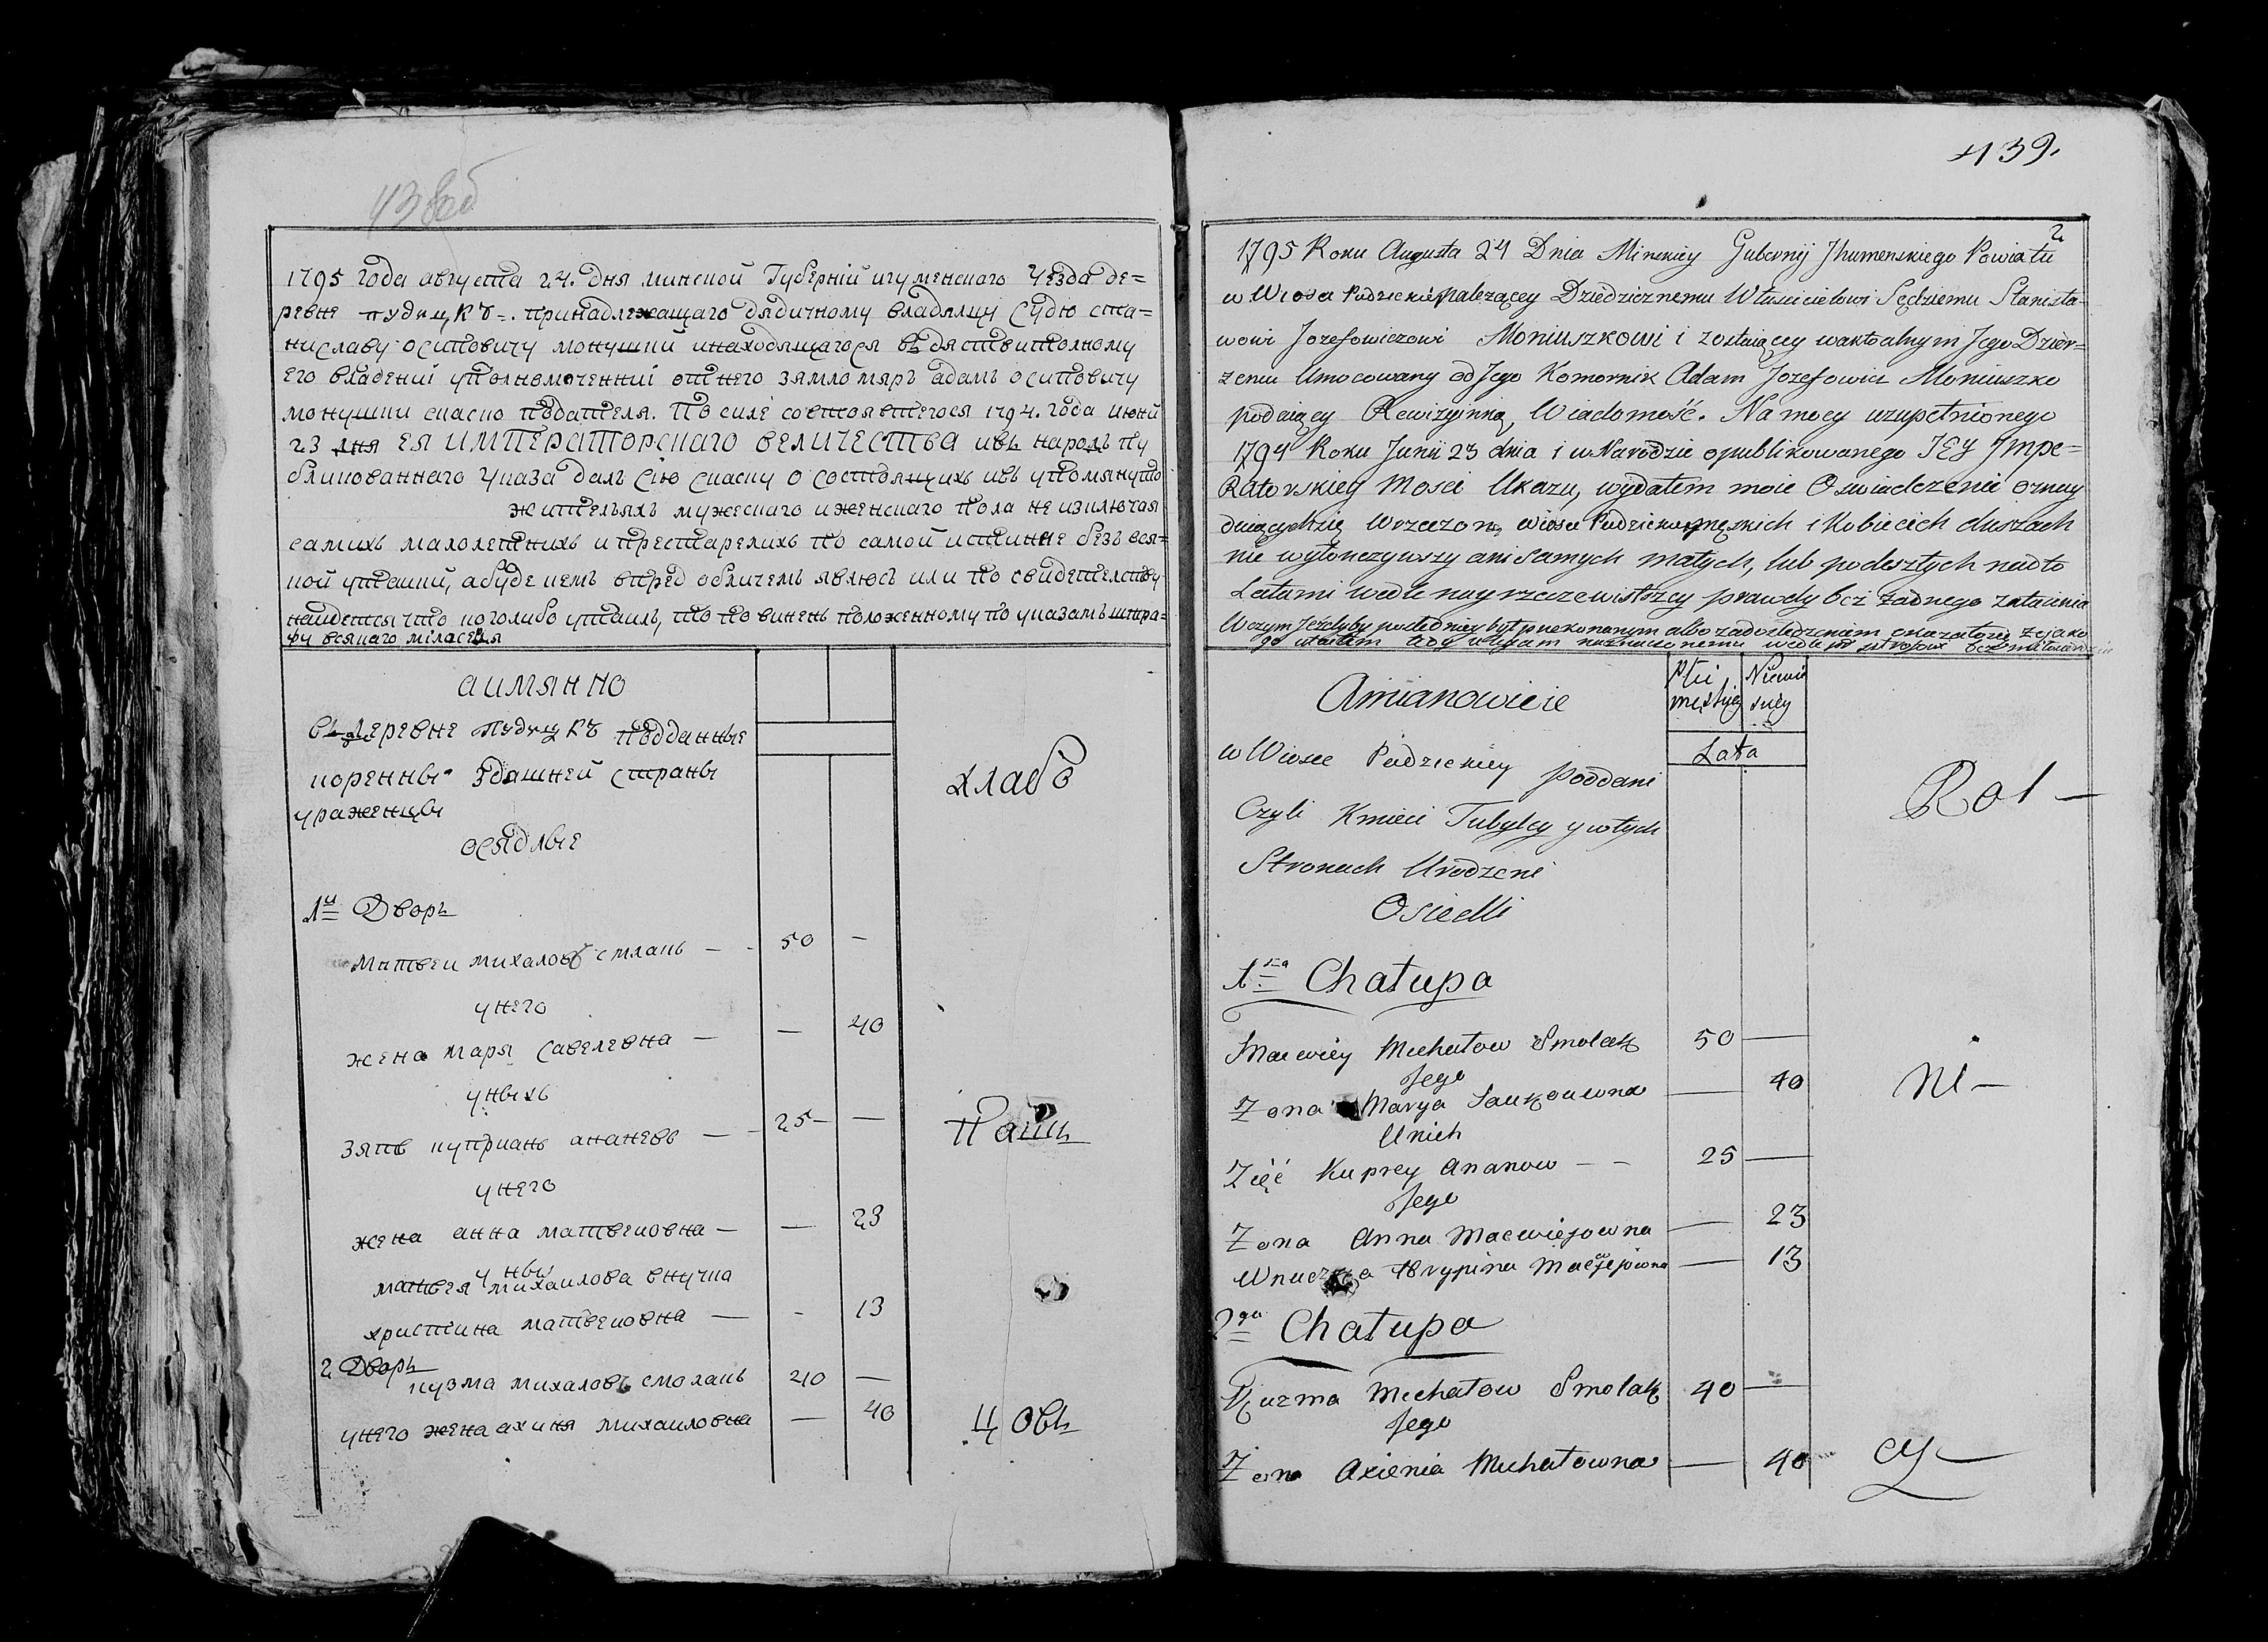 43 
1795 года августа 24. дня минской губерніи игуменского уезда де=
ревне пудицкъ принадлежащаго дядичному владялцу судю ста=
ниславу осиповичу монушки инаходящагося въ дяствителному
его владении уполномоченнии отнего зямломяръ адамъ осиповичу
монушки скаско подателя. По силе состоявшегося 1794. года июни
23 дня ея императорскаго величества ивъ народъ пу
бликованнаго указа далъ сию скаску о состоящихъ ивъ упомянуто
жителяхъ мужескаго иженскаго пола не изключая
самихъ малолетнихъ ипрестарелихъ по самой истинне безъ вся=
кой утаики, абуде кемъ впредь обличемъ явлюсь или по свидетелству
найдется что коголибо утаилъ, то повиненъ положенному по указамъ штра=
фу всякаго миласедя
аимянно
въ деревне пудицкъ подданные
коренны здашней страны
ураженцы
осядлые
хлабо
1й Дворъ
матвеи михаловъ смлакъ — 50 —
унего
жена маря савелевна — — 40
унихъ
зять куприанъ ананевъ — 25 —
пашн
унего
жена анна матвеиовна — — 23
уныхъ
матвея михаилова внучка
христина матвеиовна — - 13
2 Дворъ
кузма михаловъ смолакъ 40 —
унего жена ахиня михаиловна — 40
цовъ
439.
2
1795 Roku Augusta 24 Dnia Minskiey Gubernij Jhumenskiego Powiatu
w Wiosce Pudzickiey należącey Dziedzicznemu Właścicielowi Sędziemu Stanisła=
wowi Jozefowiczowi Moniuszkowi i zostaiącey waktoalnym Jego Dzier=
żeniu Umocowany od Jego Komornik Adam Jozefowicz Moniuszko
podaiący Rewizyinną Wiadomość. Na mocy uzupełnionego
1794 Roku Junii 23 dnia i w Narodzie opublikowanego JEY Jmpe=
Ratorskiey Mosci Ukazu, wydałem moie Oswiadczenie oznay
duiących się Wrzeczoney wiosce Pudzickiey męskich i Kobiecich duszach
nie wyłonczywszy ani samych małych, lub podeszłych nadto
Latami wedle nayrzeczewistszey prawdy bez żadnego zataienia
Wczym Jeżelyby poslednicy był przekonanym albo zadośledzeniem okazałosię że jako
go utaiłem tedy ulegam naznaczonemu wedle sztrafowi bez
Amianowicie
Płci męskiey
Niewie sciey
Lata
w Wiosce Pudzickiey Poddani
Czyli Kmieci Tubylcy y wtych
Stronach Urodzeni
Osiedli
Rol —
1sza Chałupa
Maciey Michałow Smolak 50 —
Jego
Żona Marya Saukowna — 40
Unich
ni —
Zięć Kuprey Ananow — — 25 —
Jego
Żona Anna Maciejowna — 23
Wnuczka Krypina Maciejowna — 13
2ga Chałupa
Kuzma Michałow Smolak 40 —
Jego
Żona Axienia Michałowna — 40
cy —